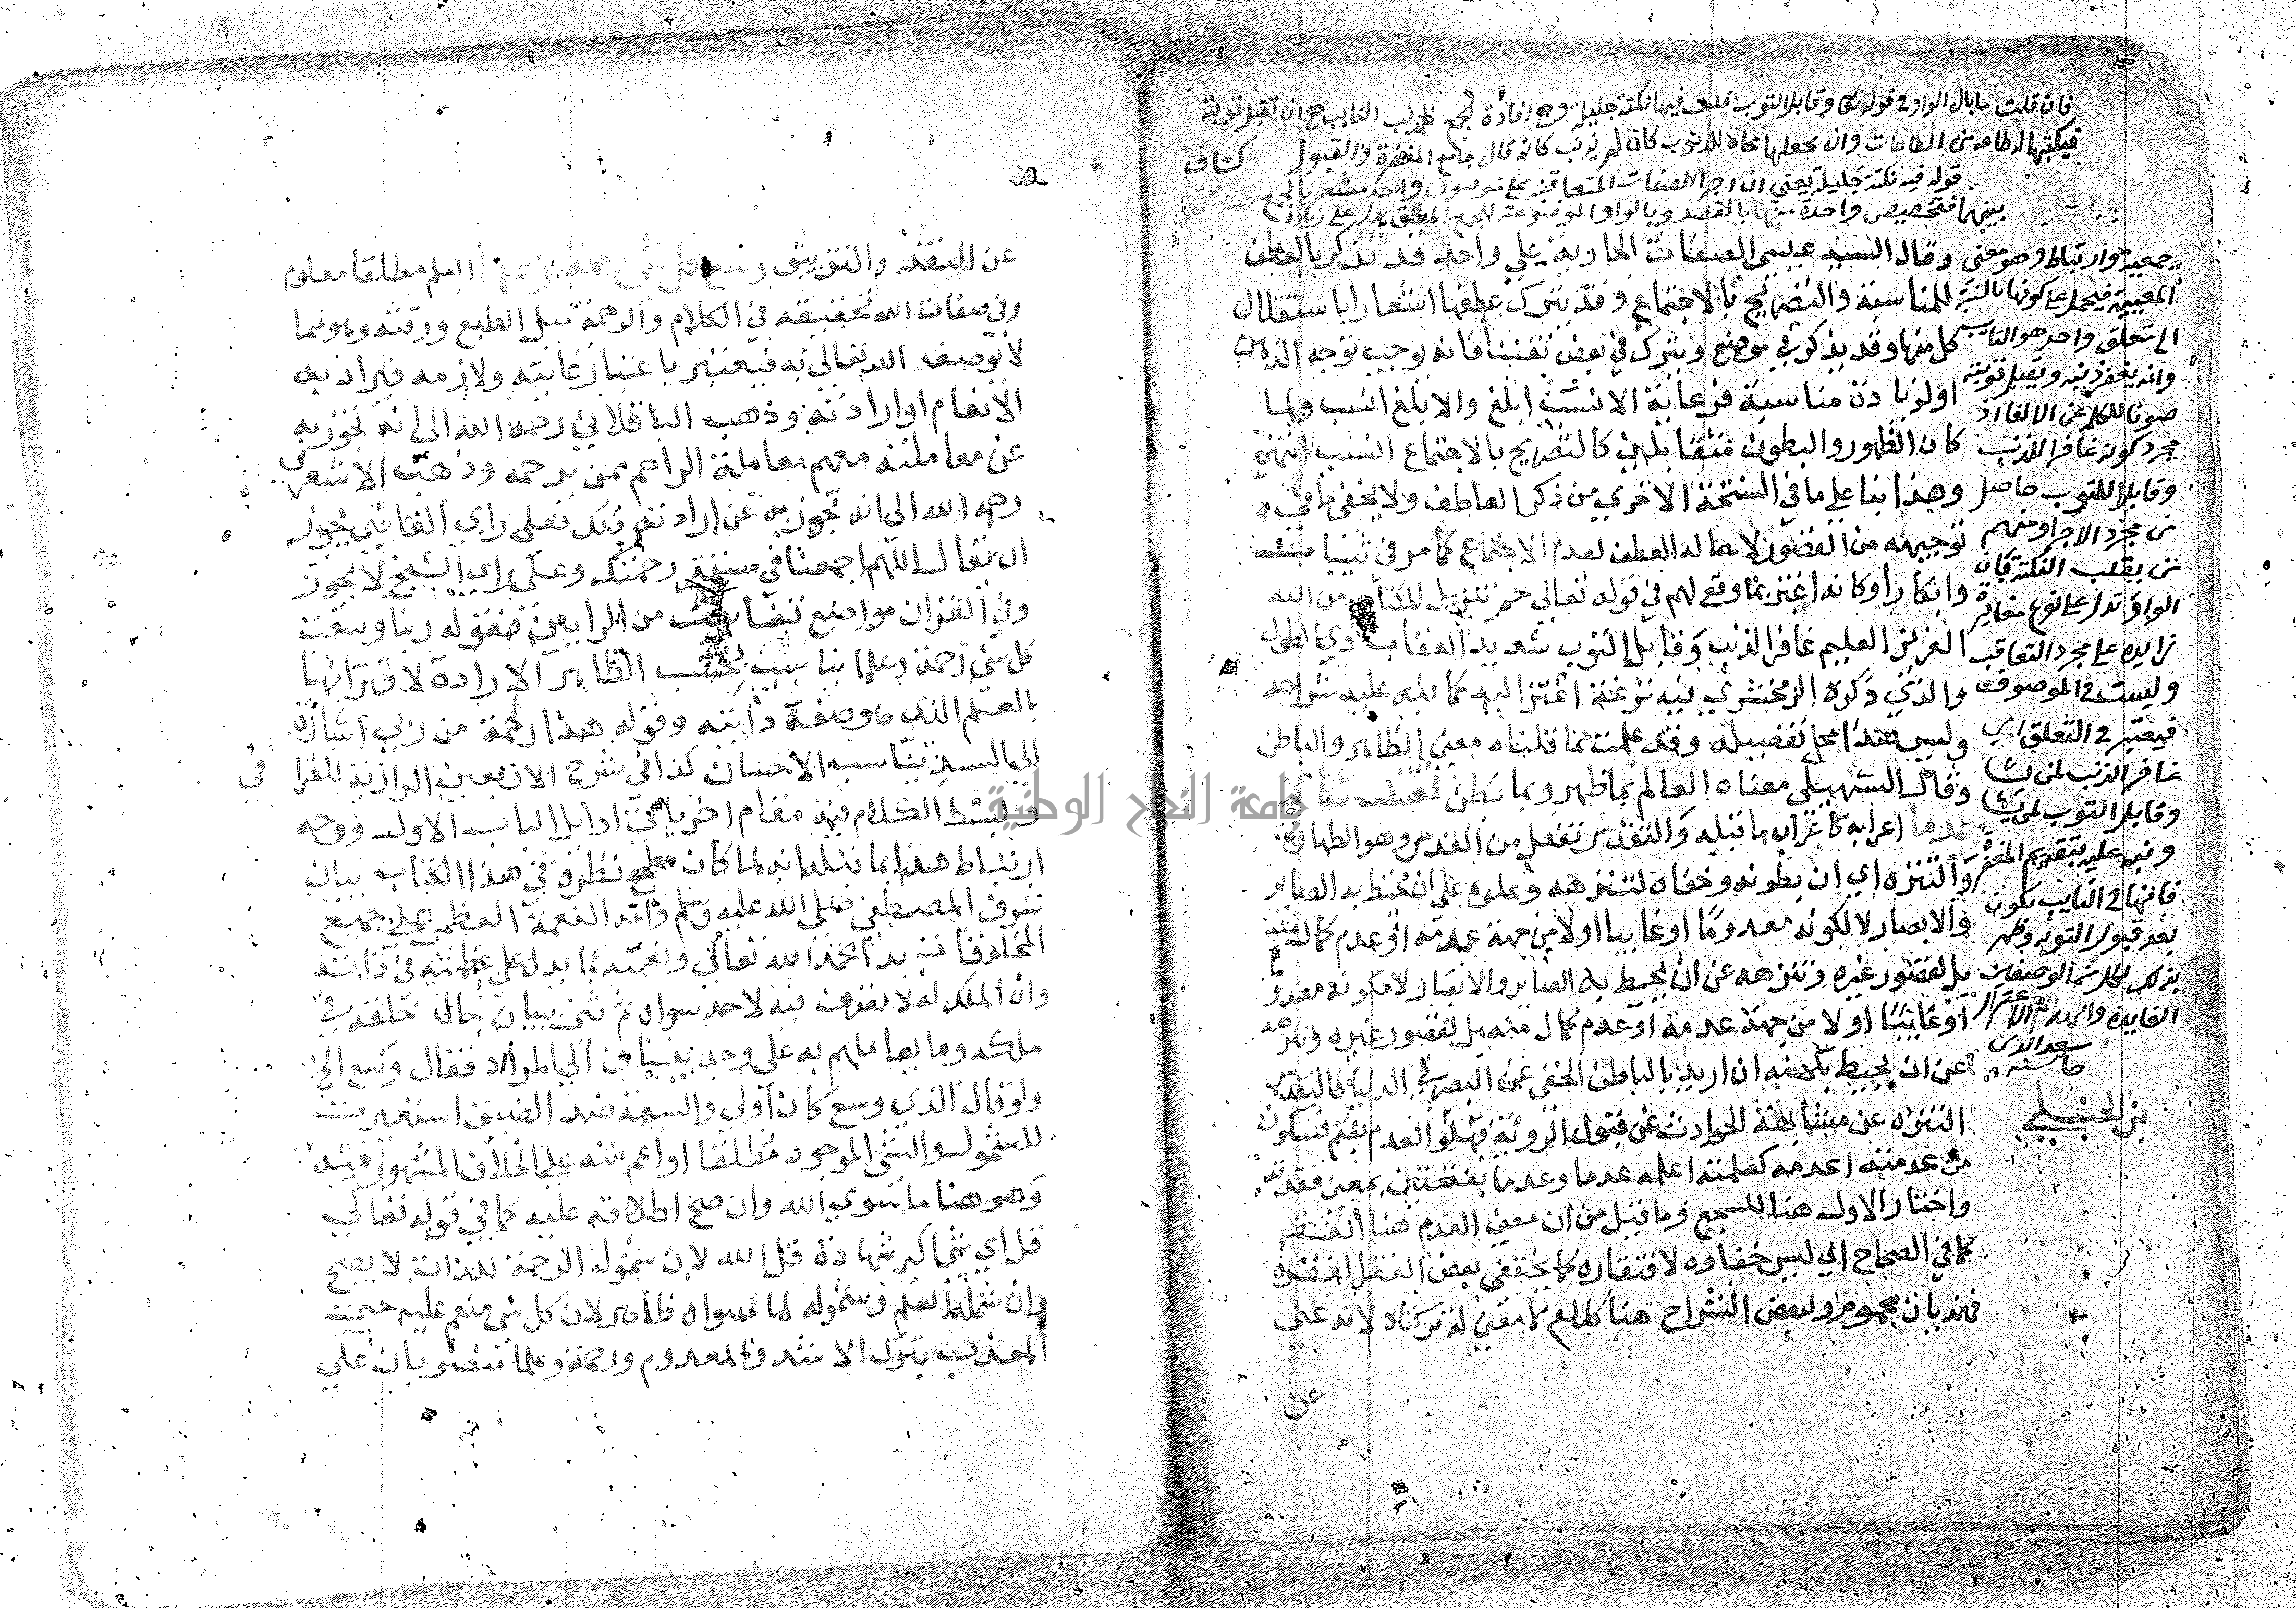 فان قلت ما بال الواو في قوله تعالى وقابل التوب قلت فيها نكتة جليلة وهي افادة الجمع للمذنب التايب بين ان تقبل توبته
فيكتبها له طاعة من الطاعات وان يجعلها محاة للذنوب كان لم يذنب كانه قال جامع المغفرة والقبول كشاف
قوله فيه نكتة جليلة يعني ان اجرا الصفات المتعاقبة على موصوف واحد مشعر بالجمع
بينهما فتخصيص واحدة منها بالقصد وبالواو الموضوعة للجمع المطلق يدل على زيادة
جمعية وارتباط وهو معنى
المعيية فيحمل على كونها بالنسبة
الى متعلق واحد هو التايب
وانه يغفر ذنبه ويقبل توبته
صونا للكلام عن الالغا اذ
مجرد كونه غافر الذنب
وقابلا للتوب حاصل
من مجرد الاجرا ومنهم
من يقلب النكتة فان
الواو تدل على نوع مغايرة
زايدة على مجرد التعاقب
وليست في الموصوف
فيعتبر في التعلق اي
غافر الذنب لمن يشا
وقابل التوب لمن يشا
ونبه عليه بتقديم المغفرة
فانها في التايب تكون
بعد قبول التوبة وظهر
بذلك
الفايدة
سعد الدين
حاشية
بن الحنبلي
وقال السيد عيسى الصفات الجارية على واحد قد تذكر بالعطف
للمناسبة والتصريح بالاجتماع وقد يترك عطفها اشعارا باستقلال
كل منها وقد يذكر في موضع ويترك في بعض تفننا فانه يوجب توجه الذهن
اولزيادة مناسبة فرعاية الانسب ابلغ والابلغ انسب ولما
كان الظهور والبطون متقابلين كالتصريح بالاجتماع انسب انتهى
وهذا بنا على ما في النسخة الاخرى من ذكر العاطف ولا يخفى ما في
توجيهه من القصور لاهماله العطف لعدم الاجتماع كما مر في ثيبات
وابكارا وكانه اغتر بما وقع لهم في قوله تعالى حم تنزيل الكتاب من الله
العزيز العليم غافر الذنب وقابل التوب شديد العقاب ذي الطول
والذي ذكره الزمخشري فيه نزغة اعتزالية كما نبه عليه شراحه
وليس هذا محل تفصيله وقد علمت مما قلناه معنى الظاهر والباطن
وقال السهيلي معناه العالم بما ظهر وبما بطن
عدما اعرابه كاعراب ما قبله والتقدس تفعل من القدس وهو الطهارة
والتنزه اي ان بطونه وخفاه لتنزهه وعلوه على ان تحيط به البصاير
والابصار لا لكونه معدوما او غايبا اولا من جهة عدمه او عدم كمال منه
بل لقصور غيره وتنزهه عن ان يحيط به البصاير والابصار لا لكونه معدوما
او غايبا اولا من جهة عدمه او عدم كمال منه بل لقصور غيره وتنزهه
عن ان يحيط بكنهه ان اريد بالباطن الخفي عن البصر في الدنيا فالتقدس
التنزه عن مشابهة الحوادث عن قبول الروية فهلوا العدم بضم فسكون
من عدمته اعدمه كعلمته اعلمه عدما وعدما بفتحتين بمعنى فقدته
واختار الاول هنا للسجع وما قيل من ان معنى العدم هنا الفقر
كما في الصحاح اي ليس خفاوه لافتقاره كما يختفي بعض الفقرا لفقره
فهذيان محموم ولبعض الشراح هنا كلام لا معنى له تركناه لانه غني
عن
عن النقد والتزييق وسع كل شي رحمة وعلما العلم مطلقا معلوم
وفي صفات الله تحقيقه في الكلام والرحمة ميل الطبع ورقته وهو مما
لا يوصف الله تعالى به فيعتبر باعتبار غايته ولازمه فيراد به
الانعام او ارادته وذهب الباقلاني رحمه الله الى انه تجوز به
عن معاملته معهم معاملة الراحم بمن يرحمه وذهب الاشعري
رحمه الله الى انه تجوز به عن ارادته ذلك فعلى راي القاضي يجوز
ان يقال اللهم اجمعنا في مستقر رحمتك وعلى راي الشيخ لا يجوز
وفي القران مواضع تناسب من الرايين فقوله ربنا وسعت
كل شي رحمة وعلما يناسب بحسب الظاهر الارادة لاقترانها
بالعلم الذي هو صفة ذاتية وقوله هذا رحمة من ربي اشارة
الى السد يناسب الاحسان كذا في شرح الاربعين الرازية للقرافي
ولبسط الكلام فيه مقام اخر ياتي في اوايل الباب الاول ووجه
ارتباط هذا بما قبله انه لما كان مطمح نظره في هذا الكتاب بيان
شرف المصطفى صلى الله عليه وسلم وانه النعمة العظمى على جميع
المخلوقات بدا بحمد الله تعالى ونعته بما يدل على عظمته في ذاته
وان الملك له لا تصرف فيه لاحد سواه ثم ثنى ببيان حال خلقه في
ملكه وما يعاملهم به على وجه ينساق الى المراد فقال وسع الخ
ولو قال الذي وسع كان اولى والسعة ضد الضيق استعيرت
للشمول والشي الموجود مطلقا او اعم منه على الخلاف المشهور فيه
وهو هنا ما سوى الله وان صح اطلاقه عليه كما في قوله تعالى
قل اي شي اكبر شهادة قل الله لان شمول الرحمة للذات لا يصح
وان شمله العلم وشموله لما سواه ظاهر لان كل شي منعم عليه حتى
المعذب بترك الاشد والمعدوم ورحمة وعلما منصوبان على
جامعة النجاح الوطنية